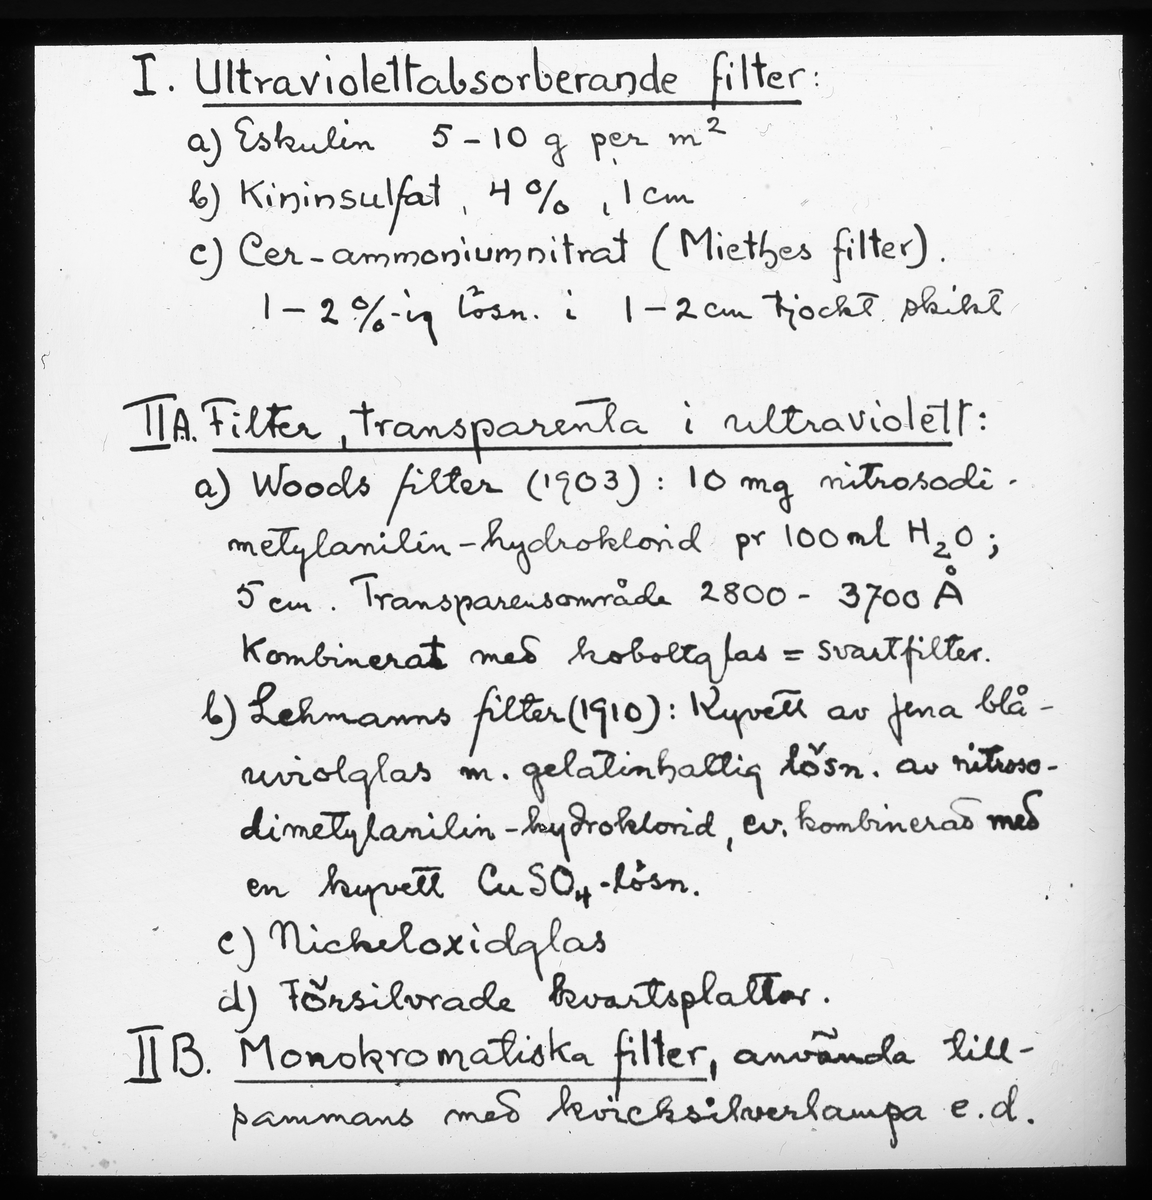 I. Ultraviolettabsorberande filter:
a) Eskulin 5-10 g per m²
b) Kininsulfat, 4%, 1 cm
c) Cer-ammoniumnitrat (Miethes filter).
1-2%-ig lösn. i 1-2 cm tjockt skikt
II A. Filter, transparenta i ultraviolett:
a) Woods filter (1903): 10 mg nitrosodi-
metylanilin-hydroklorid pr 100 ml H₂O;
5 cm. Transparensområde 2800 - 3700 Å
Kombinerat med koboltglas = svartfilter.
b) Lehmanns filter (1910): Kyvett av Jena blå-
uviolglas m. gelatinhaltig lösn. av nitroso-
dimetylanilin-hydroklorid, ev. kombinerad med
en kyvett CuSO₄-lösn.
c) Nickeloxidglas
d) Försilvrade kvartsplattor.
II B. Monokromatiska filter, använda till-
sammans med kvicksilverlampa e.d.